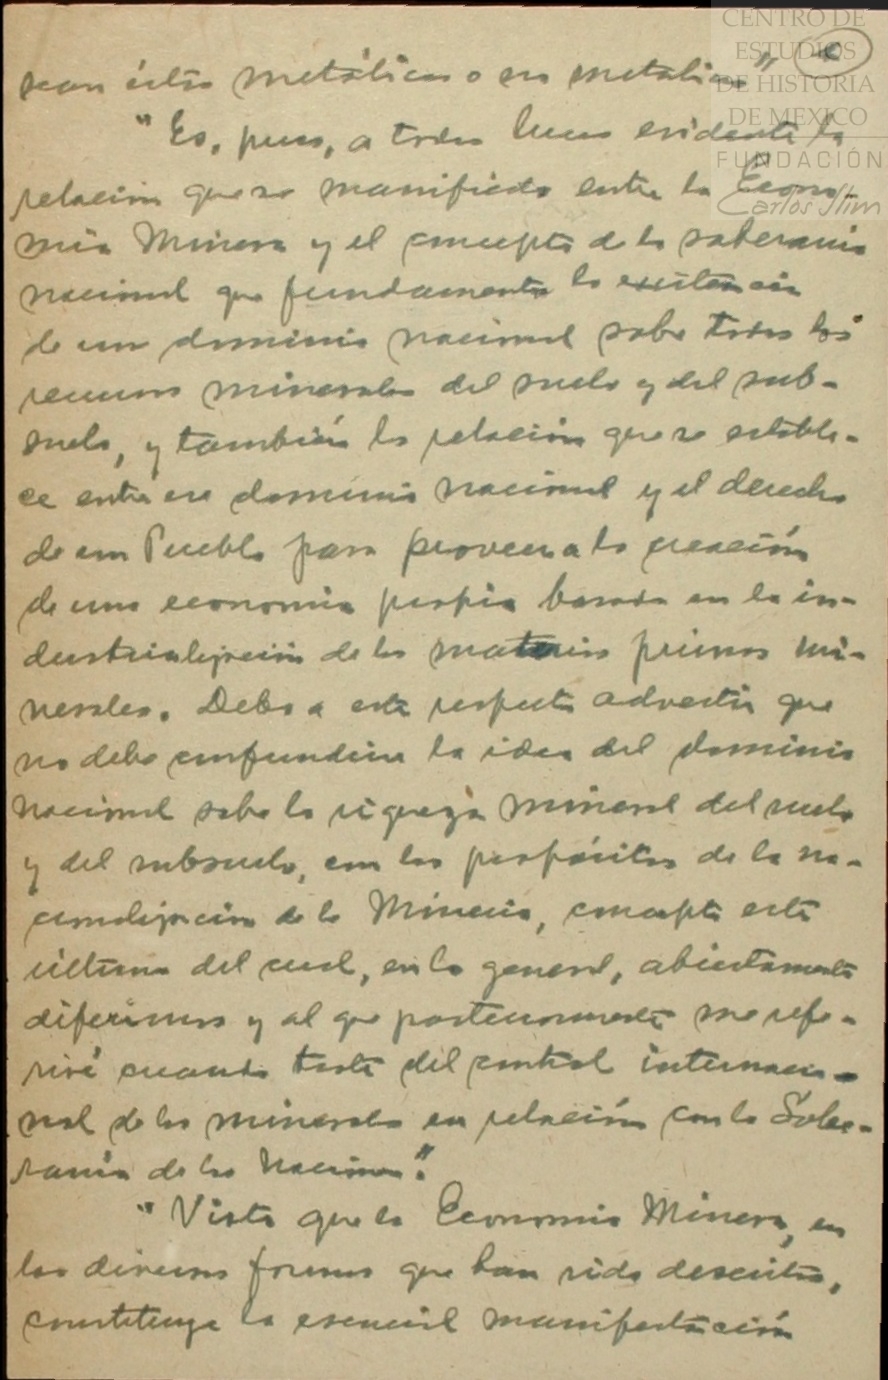 CENTRO DE
ESTUDIOS
DE HISTORIA
DE MEXICO
FUNDACIÓN
Carlos Slim
sean éstos metálicos o no metálicos"
"Es, pues, a todas luces evidente la
relación que se manifiesta entre la Econo-
mía Minera y el concepto de la soberanía
nacional que fundamenta la existencia
de un dominio nacional sobre todos los
recursos minerales del suelo y del sub-
suelo, y también la relación que se estable-
ce entre ese dominio nacional y el derecho
de un Pueblo para proveer a la creación
de una economía propia basada en la in-
dustrialización de las materias primas mi-
nerales. Debo a este respecto advertir que
no debe confundirse la idea del dominio
nacional sobre la riqueza mineral del suelo
y del subsuelo, con los propósitos de la na-
cionalización de la Minería, concepto este
último del cual, en lo general, abiertamente
diferimos y al que posteriormente me refe-
riré cuando trate del control internacio-
nal de los minerales en relación con la Sobe-
ranía de las Naciones".
"Visto que la Economía Minera, en
las diversas formas que han sido descritas,
constituye la esencial manifestación